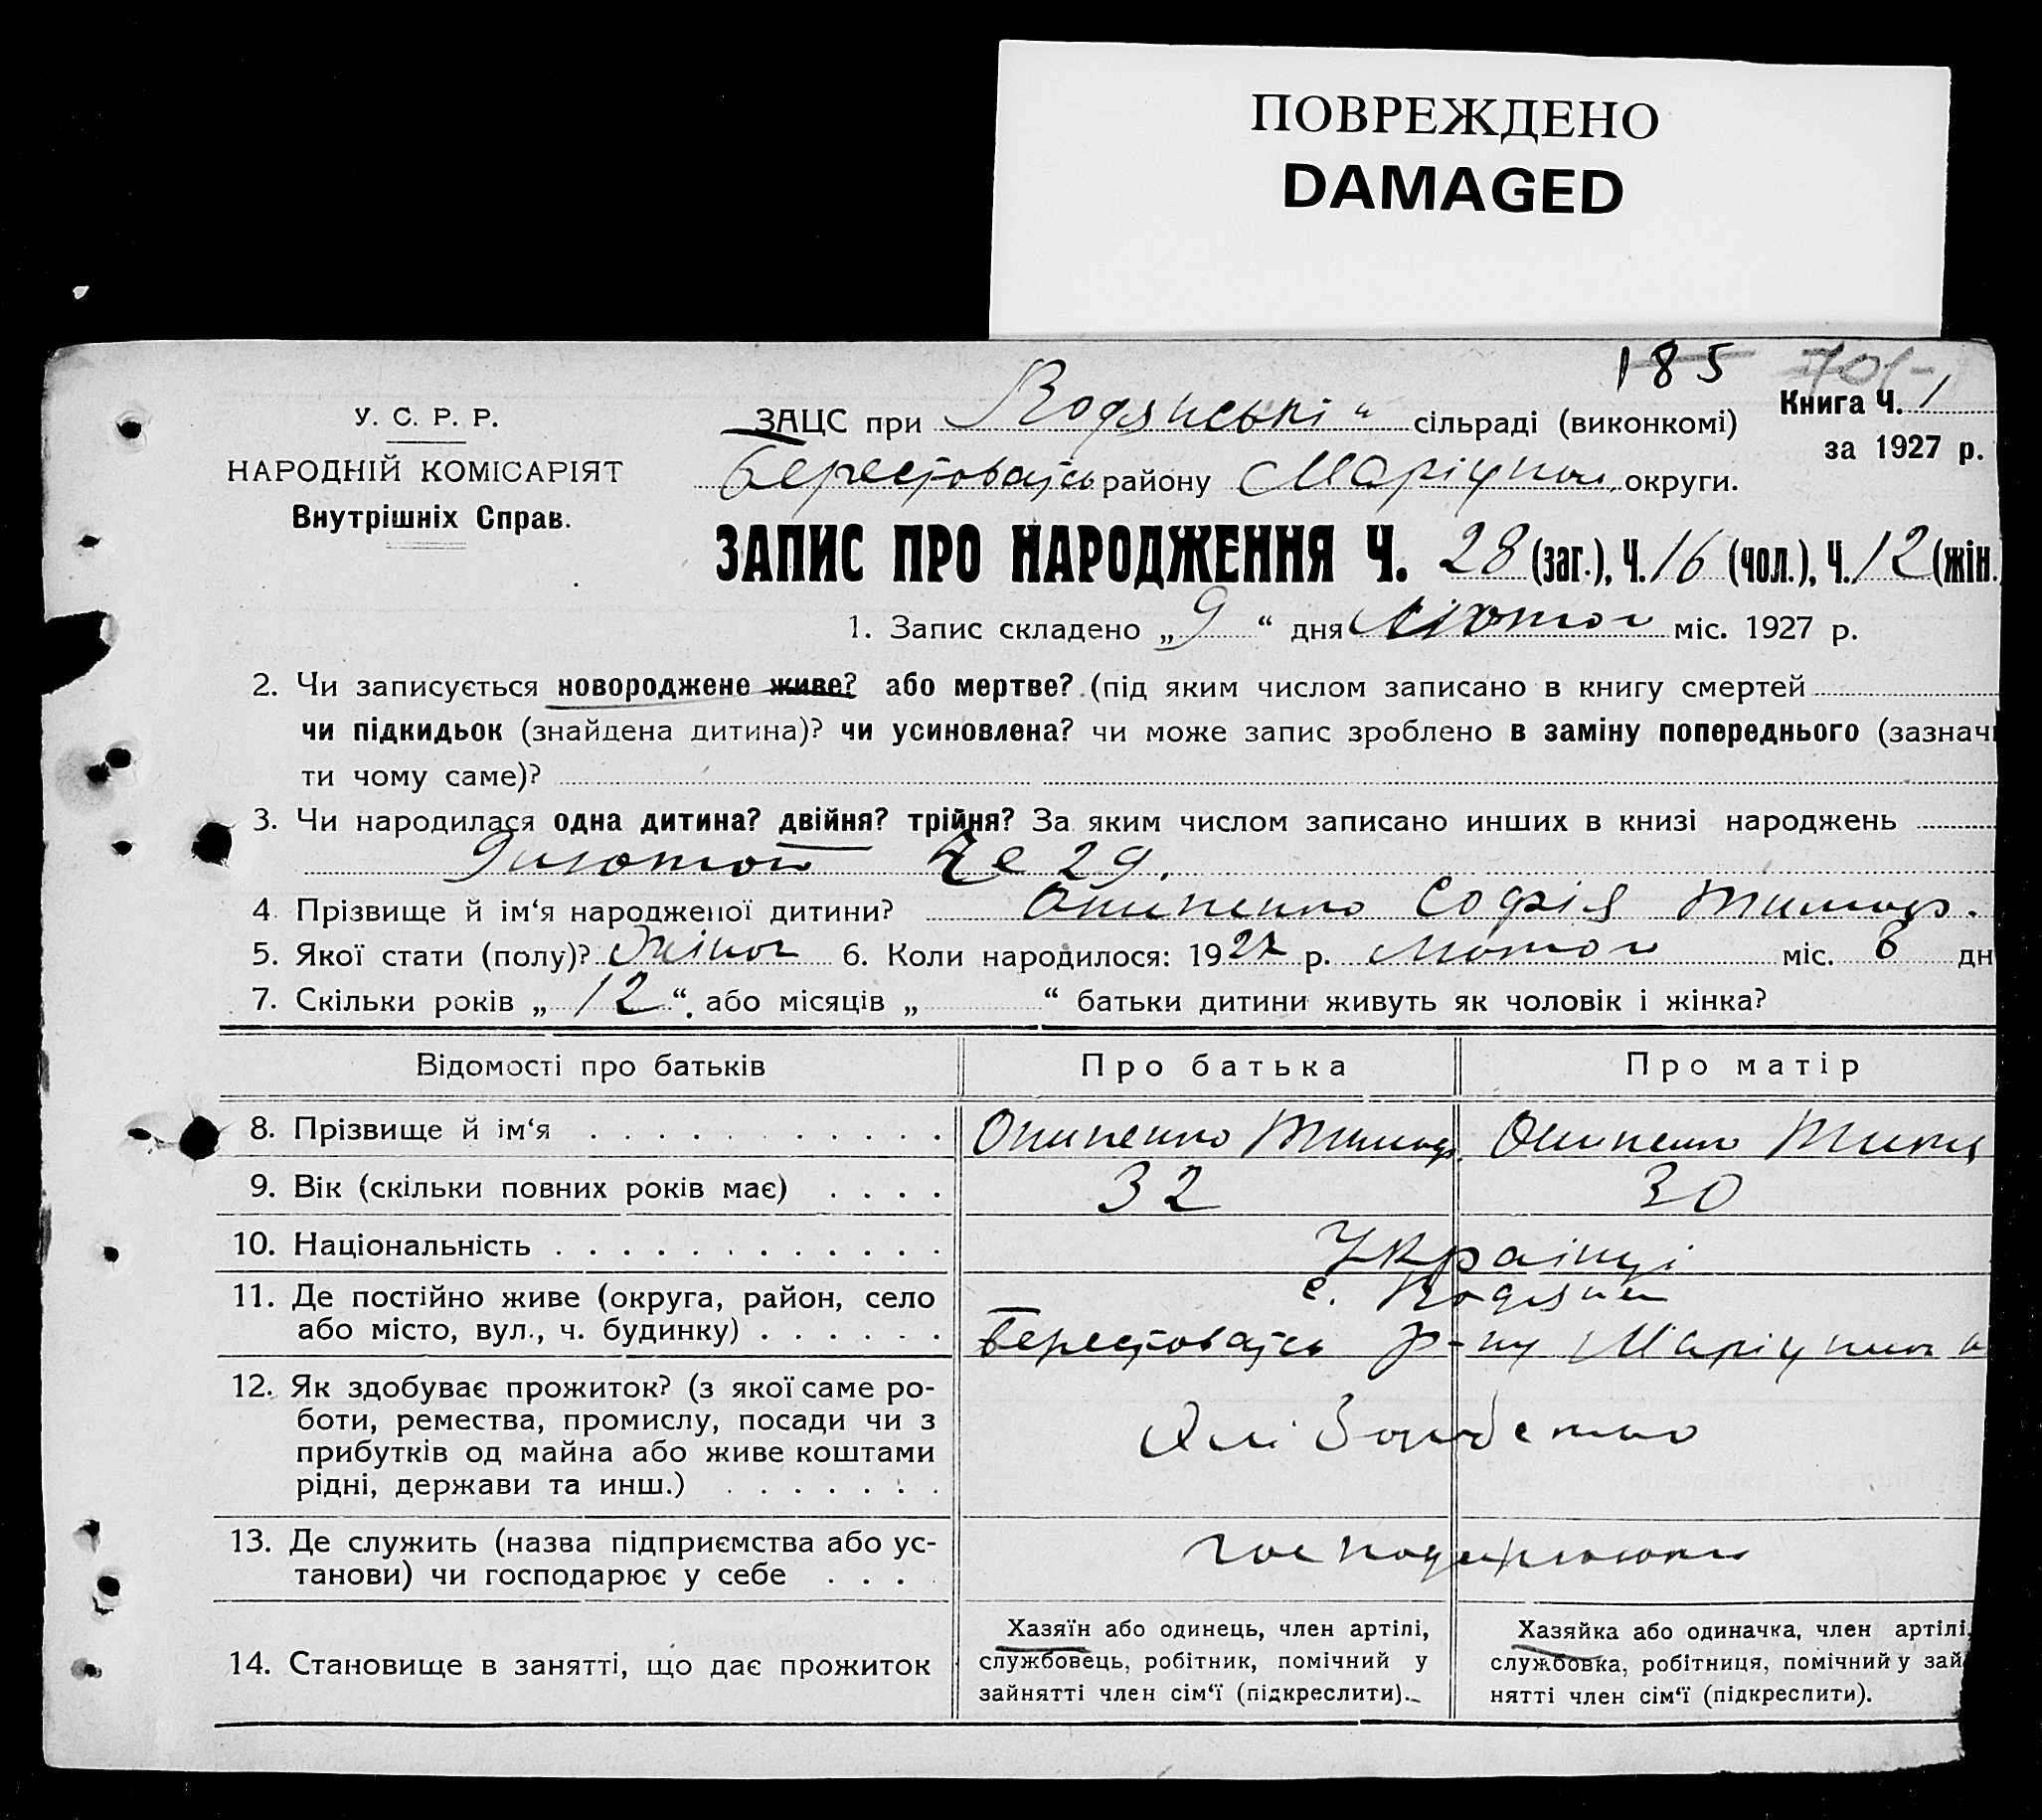 ПОВРЕЖДЕНО
DAMAGED
185 701-
Книга Ч. 1
за 1927 р.
У. С. Р. Р.
НАРОДНІЙ КОМІСАРІЯТ
Внутрішніх Справ.
ЗАЦС при Водянські й сільраді (виконкомі)
Берестоватсь району Маріупол. округи.
ЗАПИС ПРО НАРОДЖЕННЯ Ч. 28 (заг.), Ч. 16 (чол.), Ч. 12 (жін.
1. Запис складено „ 9 “ дня Лютого міс. 1927 р.
2. Чи записується новороджене живе? або мертве? (під яким числом записано в книгу смертей
чи підкидьок (знайдена дитина)? чи усиновлена? чи може запис зроблено в заміну попереднього (зазначи
ти чому саме)?
3. Чи народилася одна дитина? двійня? трійня? За яким числом записано инших в книзі народжень
9 лютого № 29.
4. Прізвище й ім‘я народженої дитини? Онипенко Софія Тимоф.
5. Якої стати (полу)? Жіноч 6. Коли народилося: 1927 р. Лютого міс. 8 дн
7. Скільки років „ 12 “, або місяців „ “ батьки дитини живуть як чоловік і жінка?
Відомості про батьків Про батька Про матір
8. Прізвище й ім‘я Онипенко Тимоф. Онипенко
9. Вік (скільки повних років має) 32 30
10. Національність Українці
11. Де постійно живе (округа, район, село с. Водяне
або місто, вул., ч. будинку) Берестоватсь р-ну Маріупол
12. Як здобуває прожиток? (з якої саме ро-
боти, ремества, промислу, посади чи з
прибутків од майна або живе коштами
рідні, держави та инш.)
13. Де служить (назва підприємства або ус-
танови) чи господарює у себе господарюють
14. Становище в занятті, що дає прожиток
Хазяїн або одинець, член артілі,
службовець, робітник, помічний у
зайнятті член сім‘ї (підкреслити).
Хазяйка або одиначка, член артілі,
службовка, робітниця, помічний у зай
нятті член сім‘ї (підкреслити).